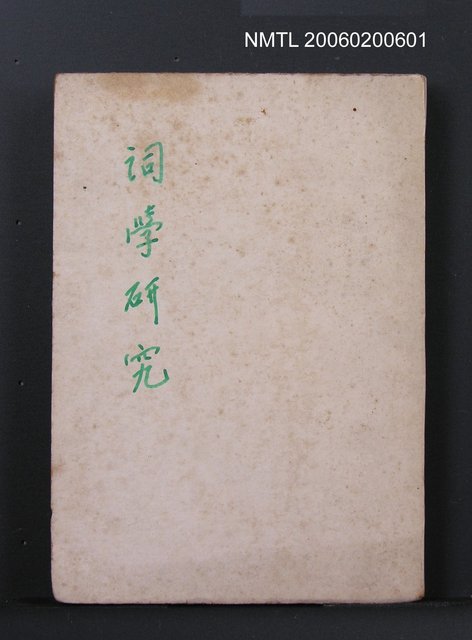 NMTL 20060200601
詞學研究